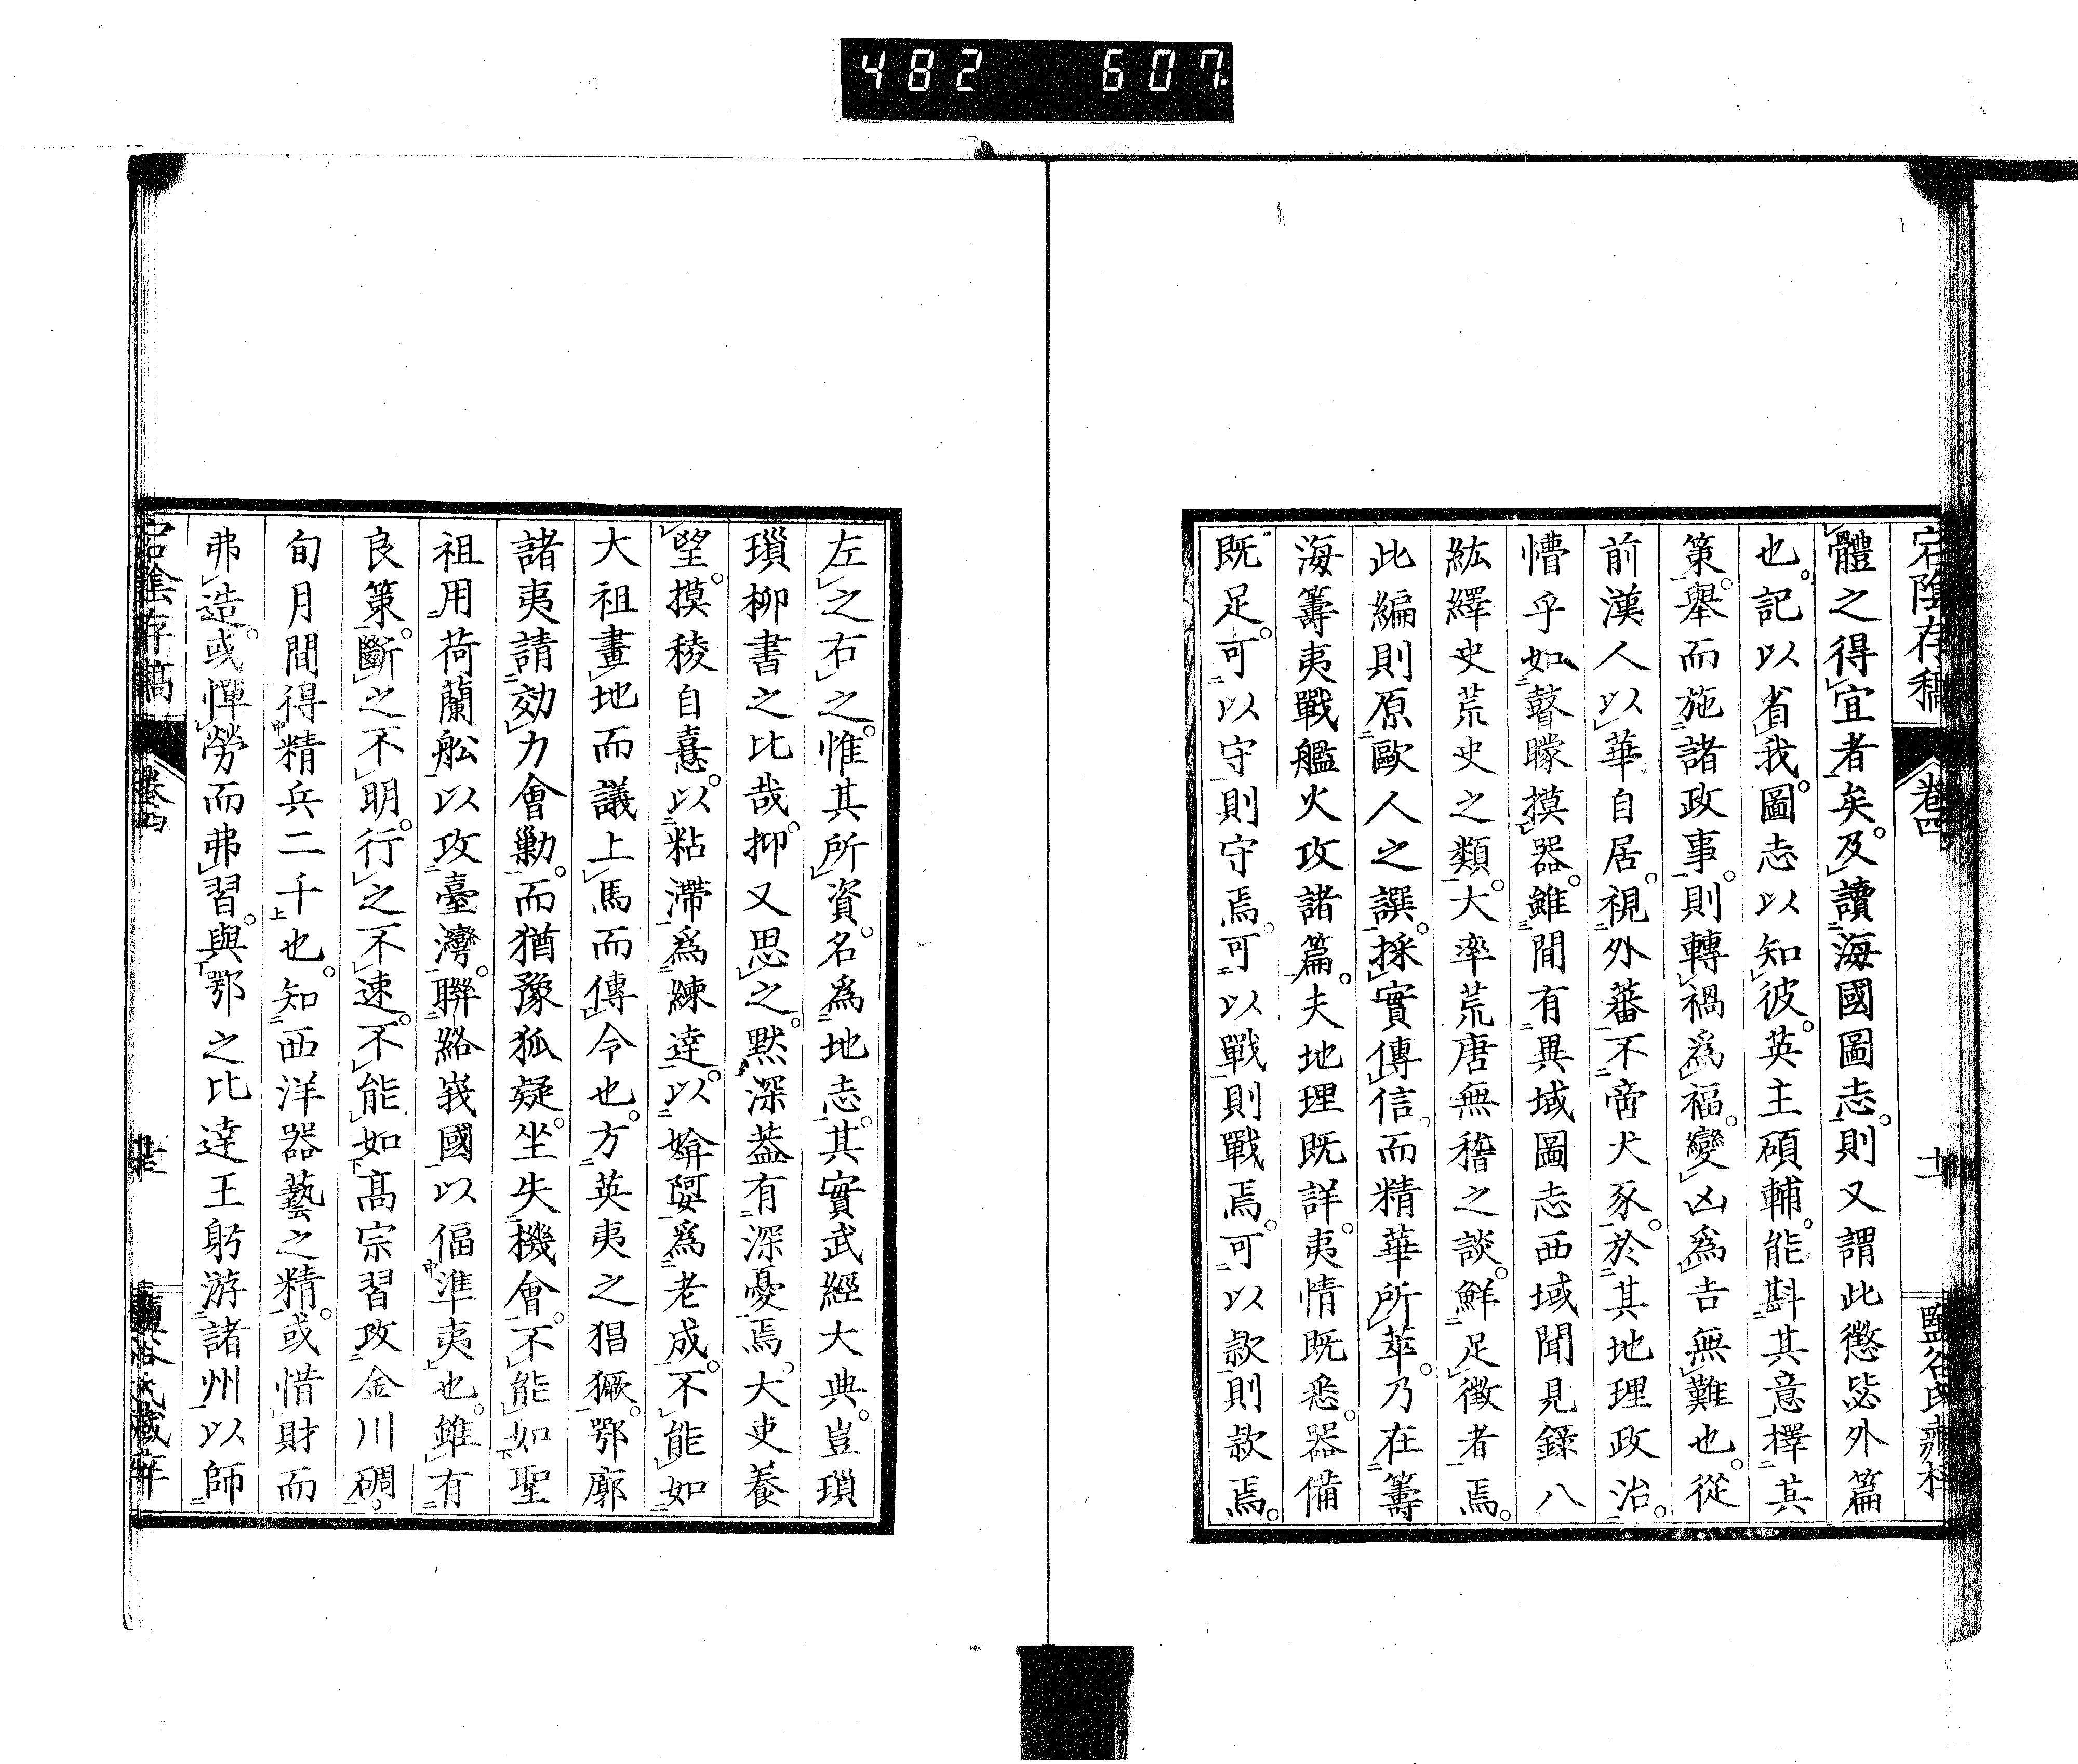 482 607.
宕陰存稿 卷四 十二 鹽谷氏藏梓
體之得宜者矣。及讀海國圖志。則又謂此懲毖外篇
也。記以省我。圖志以知彼。英主碩輔。能斟其意擇其
策。舉而施諸政事。則轉禍爲福。變凶爲吉無難也。從
前漢人以華自居。視外蕃不啻犬豕。於其地理政治。
懵乎如瞽矇摸器。雖間有異域圖志西域聞見錄八
紘繹史荒史之類。大率荒唐無稽之談。鮮足徵者焉。
此編則原歐人之譔。採實傳信。而精華所萃。乃在籌
海籌夷戰艦火攻諸篇。夫地理既詳。夷情既悉。器備
既足。可以守則守焉。可以戰則戰焉。可以款則款焉。
左之右之。惟其所資。名爲地志。其實武經大典。豈瑣
瑣柳書之比哉。抑又思之。默深葢有深憂焉。大吏養
望。摸稜自憙。以粘滯爲練達。以婩婴爲老成。不能如
大祖畫地而議上馬而傳令也。方英夷之猖獗。鄂廓
諸夷請効力會勦。而猶豫狐疑。坐失機會。不能如聖
祖用荷蘭舩以攻臺灣。聯絡峩國以偪準夷也。雖有
良策。斷之不明。行之不速。不能如高宗習攻金川碉。
旬月間得精兵二千也。知西洋器藝之精。或惜財而
弗造。或憚勞而弗習。與鄂之比達王躬游諸州以師
宕陰存稿 卷四 鹽谷氏藏梓